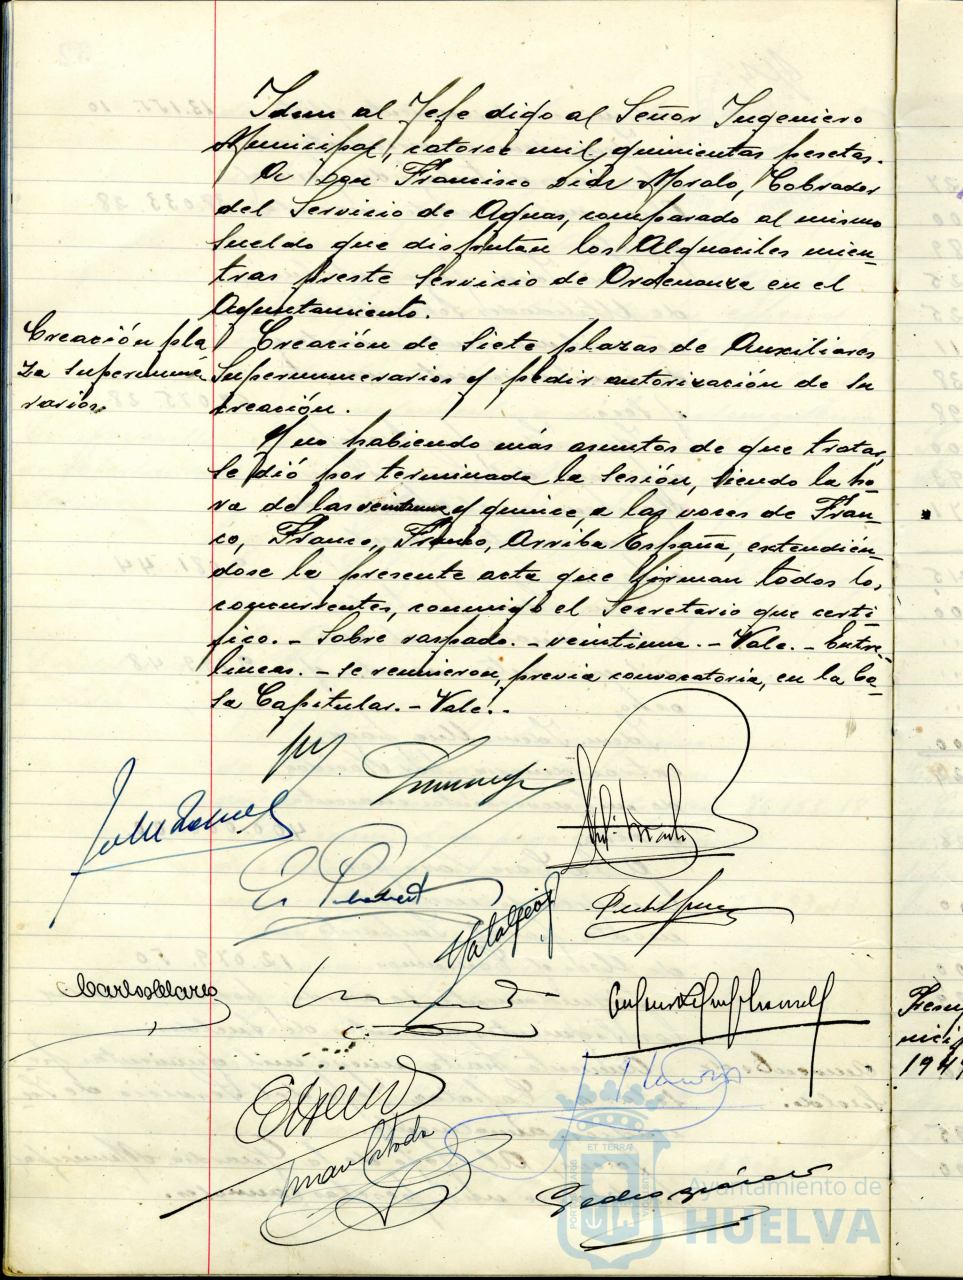 Idem al Jefe digo al Señor Ingeniero
Municipal, catorce mil quinientas pesetas.
A Don Francisco Díaz Moralo, Cobrador
del Servicio de Aguas, comparado al mismo
sueldo que disfrutan los Alguaciles mien-
tras preste servicio de Ordenanza en el
Ayuntamiento.
Creación pla
za supernume
rarios.
Creación de siete plazas de Auxiliares
Supernumerarios y pedir autorización de su
creación.
Y no habiendo más asuntos de que tratar,
se dió por terminada la sesión, siendo la ho-
ra de las veintiuna y quince, a las voces de Fran-
co, Franco, Franco, Arriba España, extendién-
dose la presente acta que firman todos los
concurrentes, conmigo el Secretario que certi-
fico. - Sobre raspado. - veintiuna. - Vale. - Entre-
lineas. - se reunieron, previa convocatoria, en la Ca-
sa Capitular. - Vale. -
ET TERRAE
Ayuntamiento de
HUELVA
194